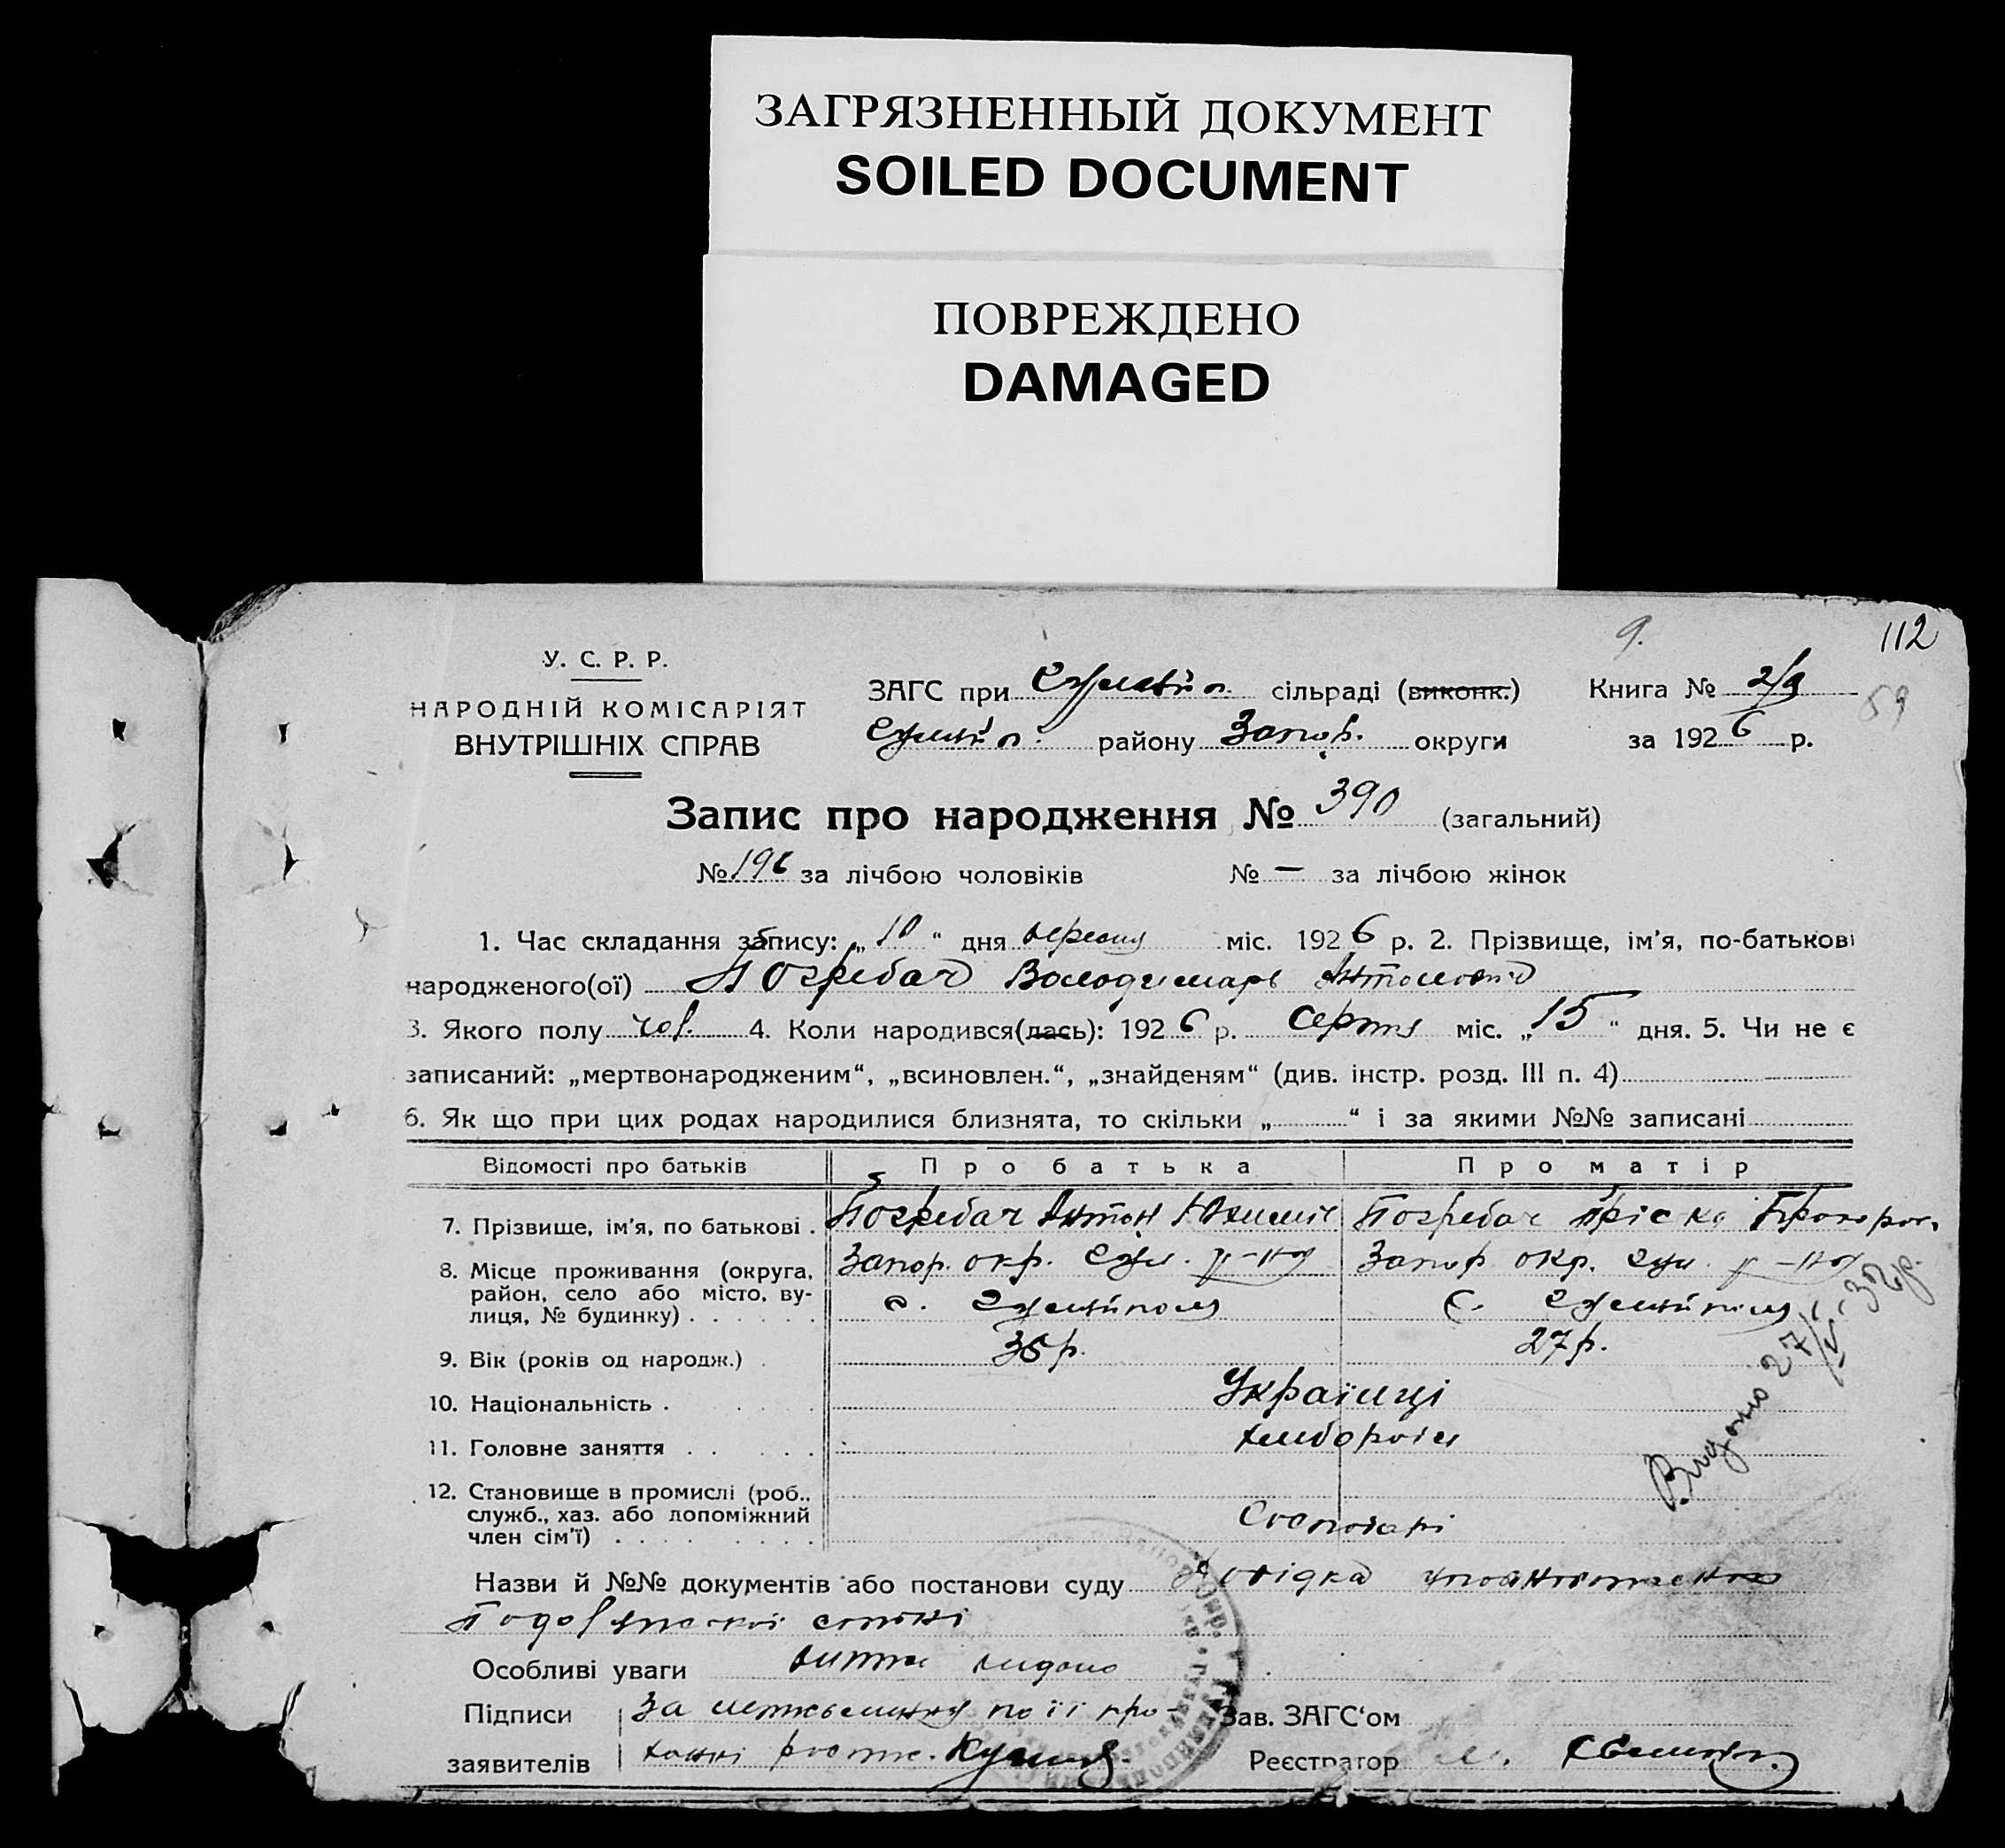 ЗАГРЯЗНЕННЫЙ ДОКУМЕНТ
SOILED DOCUMENT
ПОВРЕЖДЕНО
DAMAGED
9.
112
У. С. Р. Р.
НАРОДНІЙ КОМІСАРІЯТ
ВНУТРІШНІХ СПРАВ
ЗАГС при сільраді (виконк.) Книга № 2/3
59
району Запор. округи за 1926 р.
Запис про народження № 390 (загальний)
№ 196 за лічбою чоловіків № — за лічбою жінок
1. Час складання запису: „10“ дня вересня міс. 1926 р. 2. Прізвище, ім'я, по-батькові
народженого(ої) Погребач Володимирь Антонович
3. Якого полу чол. 4. Коли народився(лась): 1926 р. серпня міс. „15“ дня. 5. Чи не є
записаний: „мертвонародженим“, „всиновлен.“, „знайденям“ (див. інстр. розд. III п. 4)
6. Як що при цих родах народилися близнята, то скільки „ “ і за якими №№ записані
Відомості про батьків Про батька Про матір
7. Прізвище, ім'я, по батькові . Погребач Антон Юхимів Погребач Пріська Прохоров.
8. Місце проживання (округа, Запор. окр. р-ну Запор. окр. р-ну
район, село або місто, ву- с. с.
лиця, № будинку) . . . . . .
9. Вік (років од народж.) . 35 р. 27 р.
10. Національність . . . . . Українці
11. Головне заняття . . . . . хлібороби
12. Становище в промислі (роб.,
служб., хаз. або допоміжний
член сім'ї) . . . . . . . . Господарі
Видано 27/
32 р.
Назви й №№ документів або постанови суду Довідка уповноваженого
сотні
Особливі уваги витяг видано
Підписи За по її про-
Зав. ЗАГС'ом
заявителів ханні
Реєстратор